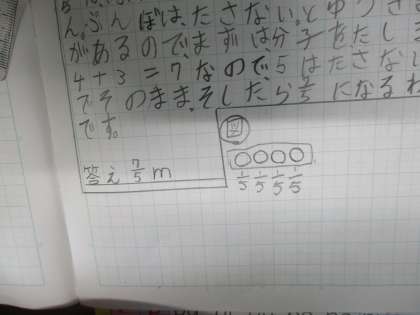 んぶんぼは、たさない。とゆう
があるので、まずは分子をたし
4+3=7なので、5はたさない
でそのまま、そしたら7/5になるね
です。
図
答え 7/5 m
1/5 1/5 1/5 1/5